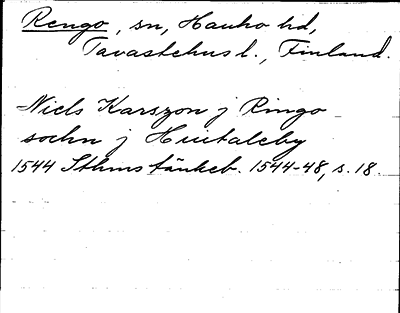 Rengo, sn, Hauho hd,
Tavastehus l., Finland.
Niels Karszon j Ringo
sochn j Huitaleby
1544 Sthms tänkeb. 1544-48, s. 18.